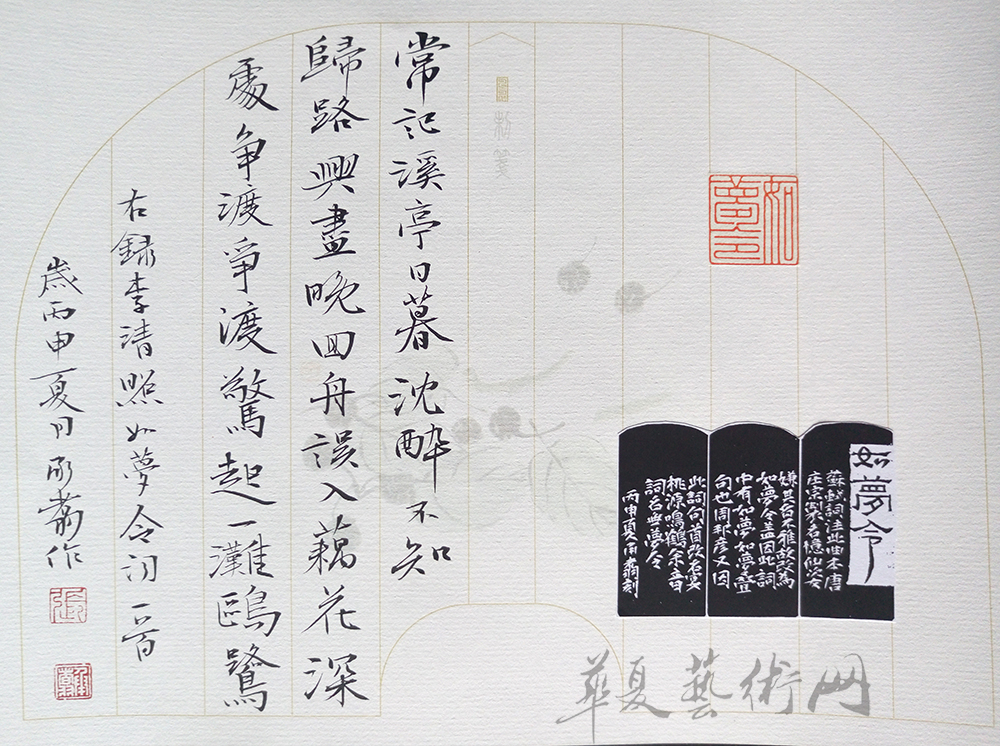 如夢令
如夢令
蘇軾詞注此曲本唐
庄宗製名憶仙姿
嫌其名不雅故改為
如夢令蓋因此詞
中有如夢如夢疊
句也周邦彥又因
此詞句首改名宴
桃源鳴鶴余音
詞名無夢令
丙申夏刻
常記溪亭日暮沈醉不知
歸路興盡晚囬舟誤入藕花深
處争渡爭渡驚起一灘鷗鷺
右録李清照如夢令詞一首
歲丙申夏月作
張
華夏藝術网